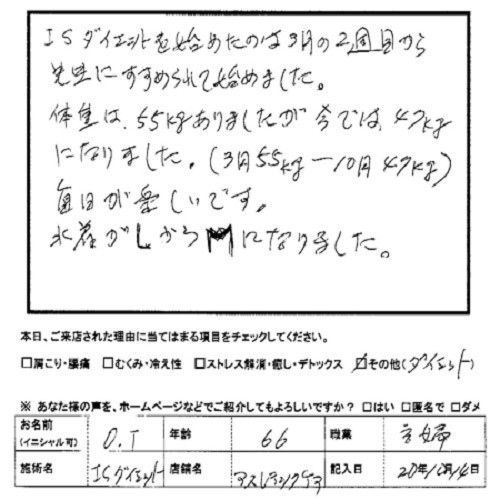 ISダイエットを始めたのは3月の2週目から
先生にすすめられて始めました。
体重は、55kgありましたが今では、47kg
になりました。(3月55kg－10月47kg)
毎日が楽しいです。
水着がLからMになりました。
本日、ご来店された理由に当てはまる項目をチェックしてください。
□肩こり・腰痛 □むくみ・冷え性 □ストレス解消・癒し・デトックス ☑その他(ダイエット)
※ あなた様の声を、ホームページなどでご紹介してもよろしいですか？ □はい □匿名で □ダメ
お名前(イニシャル可) O.T 年齢 66 職業 主婦
施術名 ISダイエット 店舗名 アスレチックケア 記入日 20年10月14日